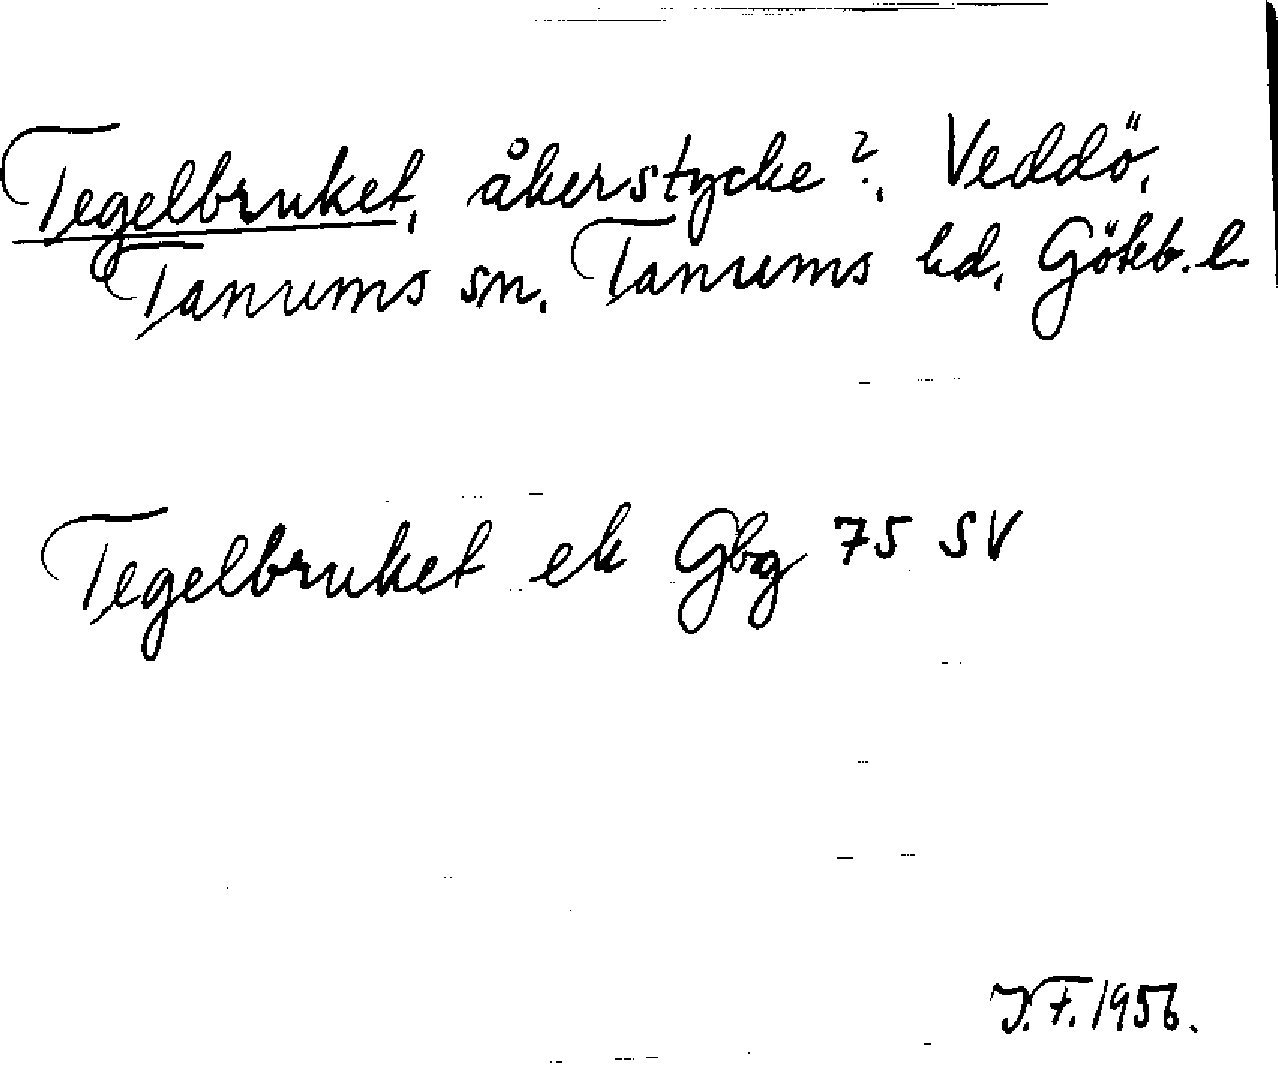 Tegelbruket, åkerstycke?, Veddö,
Tanums sn, Tanums hd, Göteb. l.
Tegelbruket ek Gbg 75 SV
J.F. 1956.